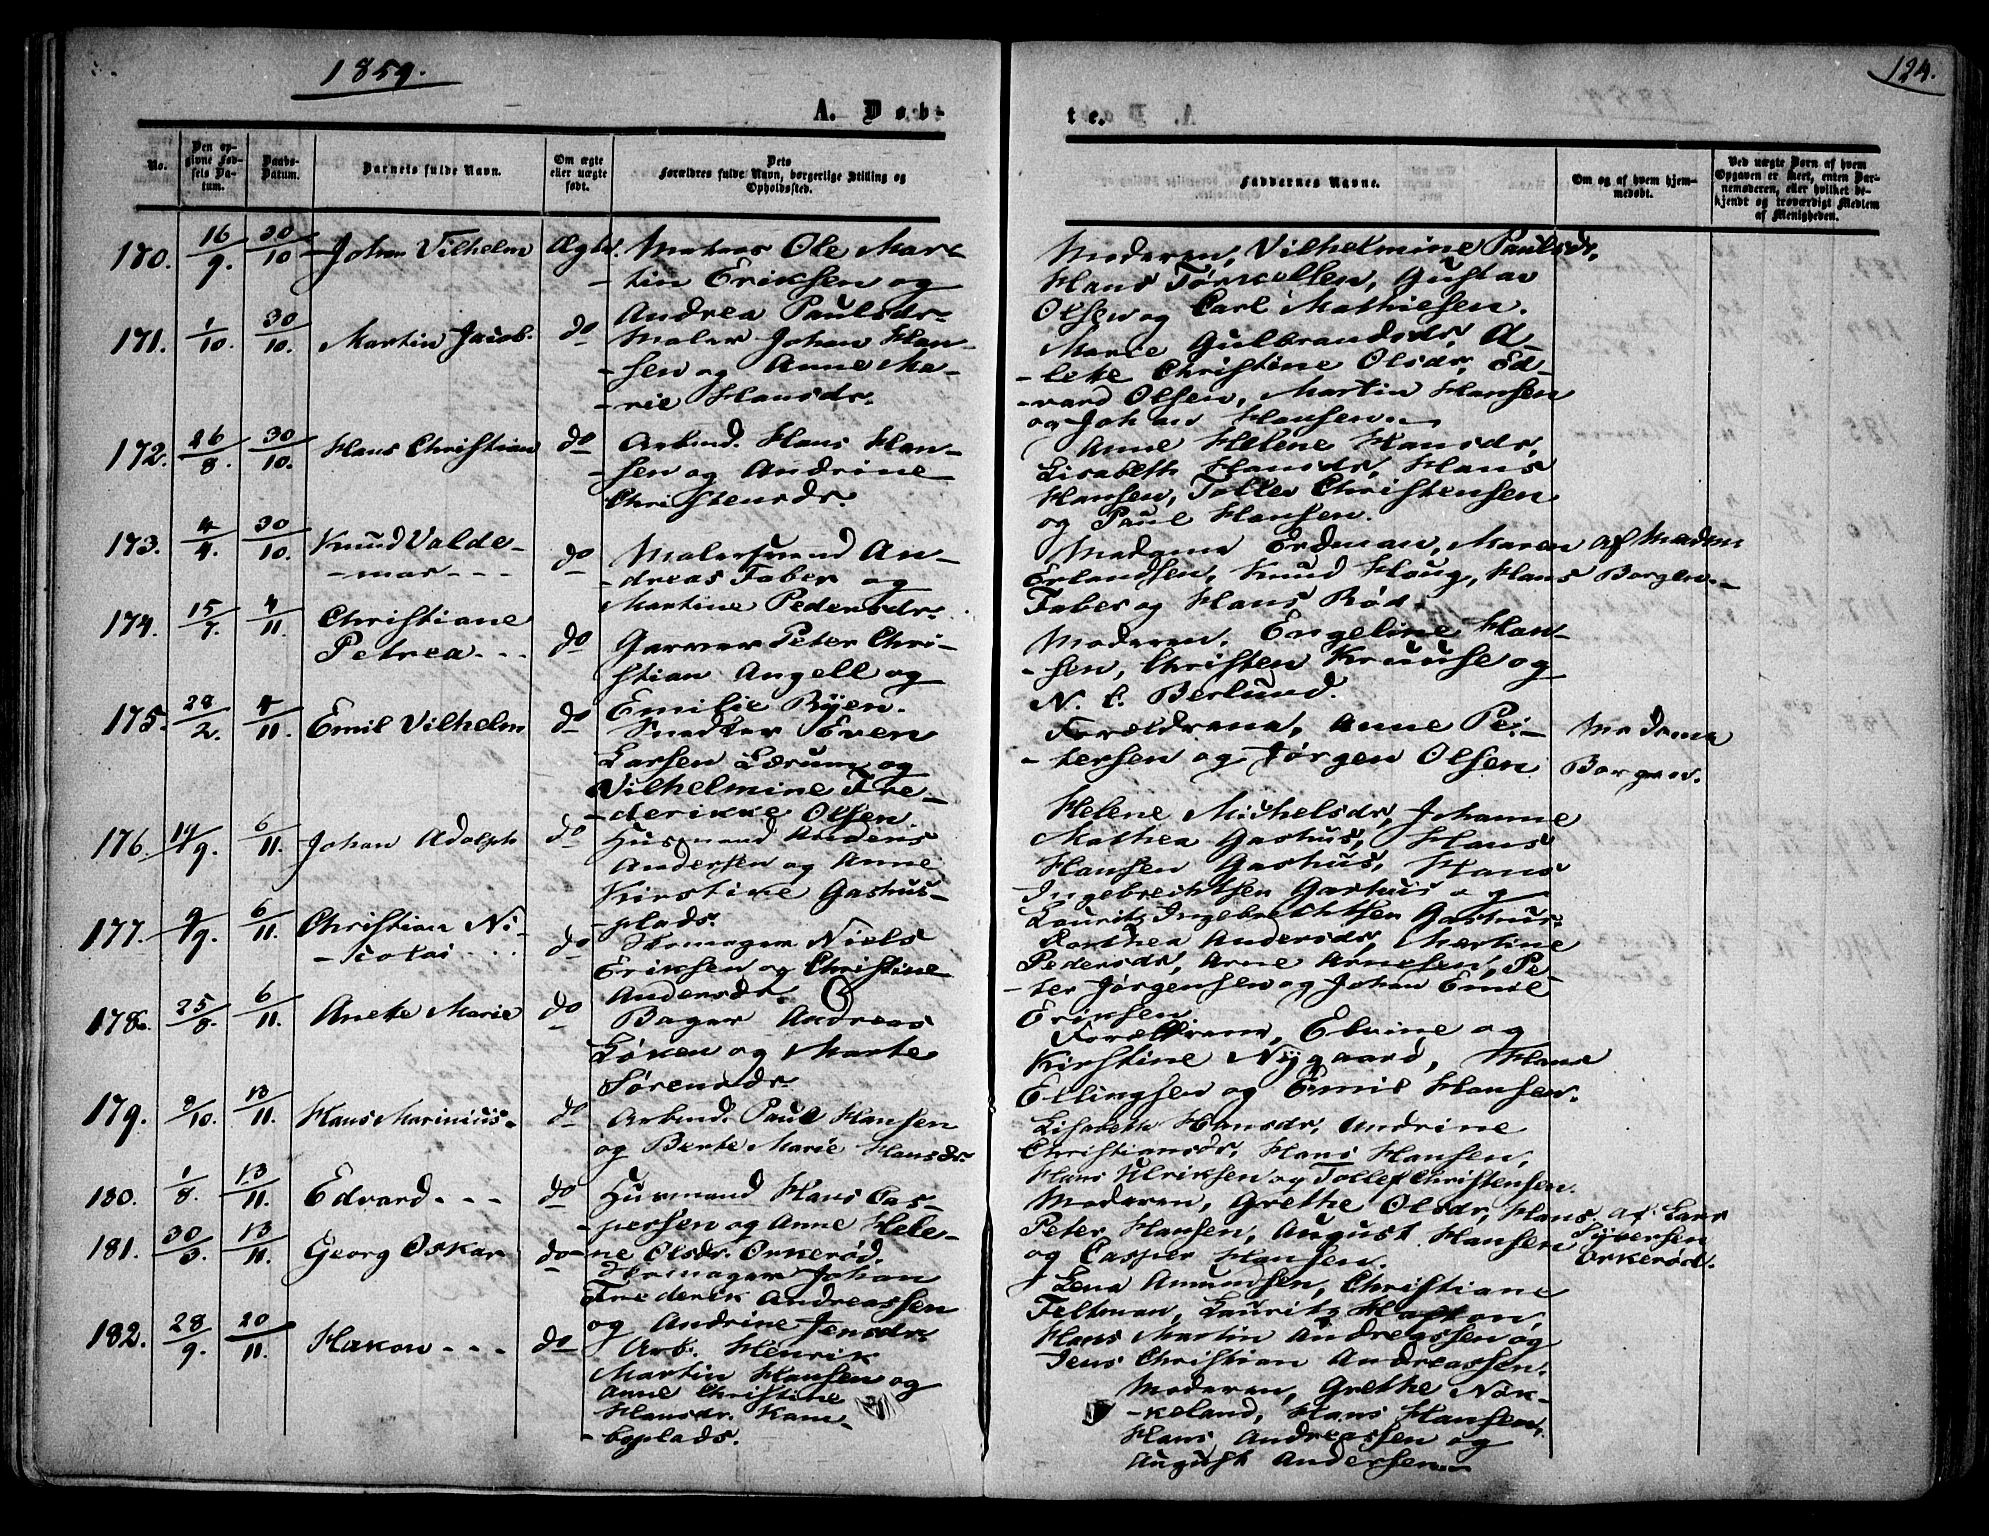 1859.
124.
A. Døb-
te.
No.
Den op-
givne Fød-
sels Da-
tum.
Daabs-
Datum.
Barnets fulde Navn.
Om ægte
eller uægte
født.
Dets
Forældres fulde Navn, borgerlige Stilling og
Opholdssted.
Faddernes Navne.
Om og af hvem hjem-
medøbt.
Ved uægte Born af hvem
Opgaven er skeet, enten Bar-
nemoderen, eller hvilket be-
kjendt og troværdigt Medlem
af Menigheden.
180. 16/9. 30/10 Johan Vilhelm Ægte. Ole Mar-
tin Eriksen og
Andrea Paulsdr.
Moderen, Vilhelmine Paulsdr,
Hans Tørkelsen, Gustav
Olsen og Carl Mathiesen.
171. 1/10. 30/10. Martin Jacob. do Maler Johan Han-
sen og Anne Ma-
rie Hansdr.
Marie Gulbrandsdr, A-
lete Christine Olsdr, Ed-
vard Olsen, Martin Hansen
og Johan Hansen
172. 26/8. 30/10. Hans Christian do Arbmd. Hans Han-
sen og Andrine
Christensdr.
Anne Helene Hansdr,
Lisabeth Hansdr, Hans
Hansen, Tollef Christensen
og Paul Hansen.
173. 4/4. 30/10. Knud Valde-
mar - - - do Malersvend An-
dreas Faber og
Martine Pedersdr.
Madame Erdman, Maren
Erlandsen, Knud Houg, Hans
Faber og Hans Rød.
af Madam
Borgen.
174. 15/7. 4/11. Christiane
Petrea - - - do Garver Peter Chri-
stian Angell og
Emilie Ryen.
Moderen, Engeline Han-
sen, Christen Kruuse og
N. C. Berlund.
175. 28/2. 4/11. Emil Vilhelm do Snedker Even
Larsen Lærum og
Vilhelmine Fre-
derikke Olsen.
Forældrene, Anne Pe-
tersen og Jørgen Olsen
Madame
Borgen.
176 19/9. 6/11. Johan Adolph do Husmand Anders
Andersen og Anne
Kirstine Gashus-
plads.
Helene Michelsdr, Johanne
Mathea Gashus, Hans
Hansen Gashus, Hans
Ingebrechtsen Gashus og
Lauritz Ingebrechtsen Gashus.
177. 9/9. 6/11. Christian Ni-
colai - - - do Skomager Niels
Eriksen og Christine
Andersdr.
Dorthea Andersdr, Martine
Pedersdr, Arne Arnesen, Pe-
ter Jørgensen og Johan Emil
Eriksen.
178. 25/8. 6/11. Anete Marie do Bager Andreas
Løken og Marte
Sørensdr.
Forældrene, Elvine og
Kirstine Nygaard, Hans
Ellingsen og Emil Hansen.
179. 9/10. 13/11. Hans Marinius. do Arbmd. Paul Hansen
og Berte Marie Hansdr.
Lisabeth Hansdr, Andrine
Christiansdr, Hans Hansen,
Hans Ulriksen og Tollef Christensen.
180. 1/8. 13/11. Edvard - - - do Husmand Hans Cas-
persen og Anne Hele-
ne Olsdr. Orkerød.
Moderen, Grethe Olsdr, Hans
Peter Hansen, August Hansen
og Casper Hansen.
af Lars
Syversen
Orkerød.
181. 30/3. 13/11. Georg Oskar do Skomager Johan
Frederik Andreassen
og Andrine Jensdr.
Lena Amundsen, Christiane
Feltman, Lauritz
Hans Martin Andreassen og
Jens Christian Andreassen.
182. 28/9. 20/11. Hakon - - - do Arb. Henrik
Martin Hansen og
Anne Christine
Hansdr. Kam-
boplads.
Moderen, Grethe Nøk-
keland, Hans Hansen,
Hans Andreassen og
August Andersen.